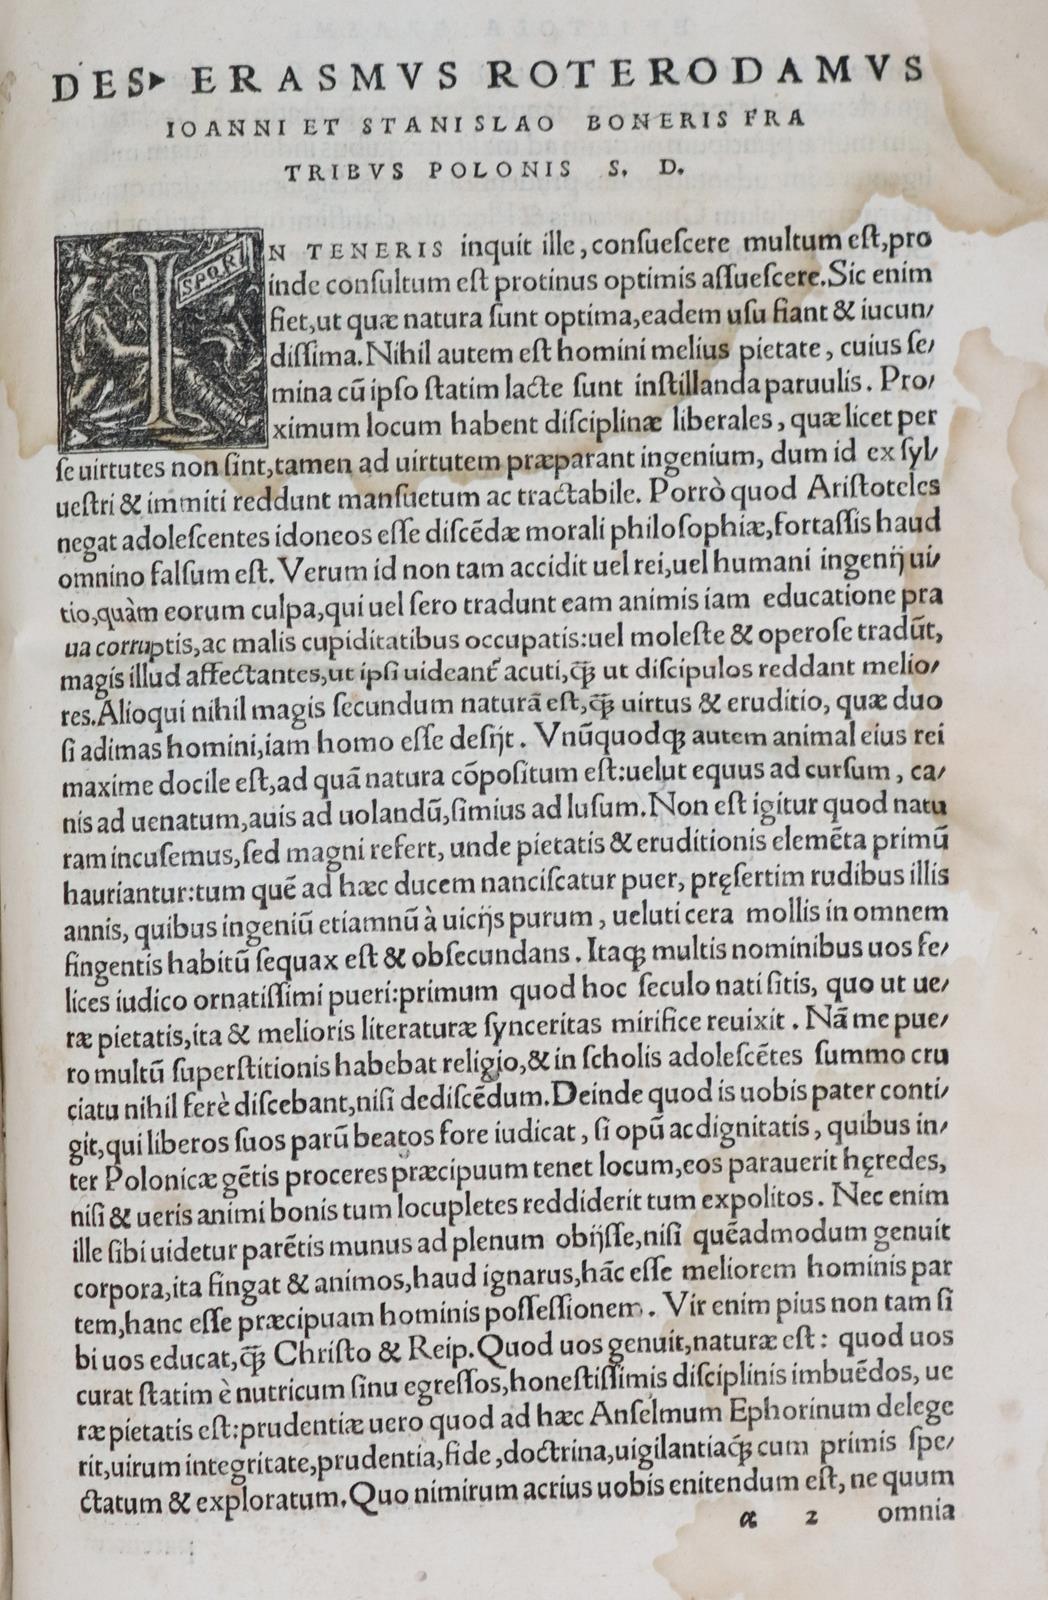 DES▸ ERASMVS ROTERODAMVS
IOANNI ET STANISLAO BONERIS FRA
TRIBVS POLONIS S. D.
SPQR
IN TENERIS inquit ille, conſueſcere multum eſt, pro
inde conſultum eſt protinus optimis aſſueſcere. Sic enim
fiet, ut quæ natura ſunt optima, eadem uſu fiant & iucun/
diſſima. Nihil autem eſt homini melius pietate, cuius ſe/
mina cũ ipſo ſtatim lacte ſunt inſtillanda paruulis. Pro/
ximum locum habent diſciplinæ liberales, quæ licet per
ſe uirtutes non ſint, tamen ad uirtutem præparant ingenium, dum id ex ſyl/
ueſtri & immiti reddunt manſuetum ac tractabile. Porrò quod Ariſtoteles
negat adoleſcentes idoneos eſſe diſcẽdæ morali philoſophiæ, fortaſſis haud
omnino falſum eſt. Verum id non tam accidit uel rei, uel humani ingenij ui/
tio, quàm eorum culpa, qui uel ſero tradunt eam animis iam educatione pra
ua corruptis, ac malis cupiditatibus occupatis: uel moleſte & operoſe tradũt,
magis illud affectantes, ut ipſi uideant᷑ acuti, q̃ꝫ ut diſcipulos reddant melio/
res. Alioqui nihil magis ſecundum naturã eſt, q̃ꝫ uirtus & eruditio, quæ duo
ſi adimas homini, iam homo eſſe deſijt. Vnũquodqꝫ autem animal eius rei
maxime docile eſt, ad quã natura cõpoſitum eſt: uelut equus ad curſum, ca/
nis ad uenatum, auis ad uolandũ, ſimius ad luſum. Non eſt igitur quod natu
ram incuſemus, ſed magni refert, unde pietatis & eruditionis elemẽta primũ
hauriantur: tum quẽ ad hæc ducem nanciſcatur puer, pręſertim rudibus illis
annis, quibus ingeniũ etiamnũ à uicijs purum, ueluti cera mollis in omnem
fingentis habitũ ſequax eſt & obſecundans. Itaqꝫ multis nominibus uos fe/
lices iudico ornatiſſimi pueri: primum quod hoc ſeculo nati ſitis, quo ut ue/
ræ pietatis, ita & melioris literaturæ ſynceritas mirifice reuixit. Nã me pue/
ro multũ ſuperſtitionis habebat religio, & in ſcholis adoleſcẽtes ſummo cru
ciatu nihil ferè diſcebant, niſi dediſcẽdum. Deinde quod is uobis pater conti/
git, qui liberos ſuos parũ beatos fore iudicat, ſi opũ ac dignitatis, quibus in/
ter Polonicæ gẽtis proceres præcipuum tenet locum, eos parauerit hęredes,
niſi & ueris animi bonis tum locupletes reddiderit tum expolitos. Nec enim
ille ſibi uidetur parẽtis munus ad plenum obijſſe, niſi quẽadmodum genuit
corpora, ita fingat & animos, haud ignarus, hãc eſſe meliorem hominis par
tem, hanc eſſe præcipuam hominis poſſeſſionem. Vir enim pius non tam ſi
bi uos educat, q̃ꝫ Chriſto & Reip. Quod uos genuit, naturæ eſt: quod uos
curat ſtatim è nutricum ſinu egreſſos, honeſtiſſimis diſciplinis imbuẽdos, ue
ræ pietatis eſt: prudentiæ uero quod ad hæc Anſelmum Ephorinum delege
rit, uirum integritate, prudentia, fide, doctrina, uigilantiaq̃ꝫ cum primis ſpe/
ctatum & exploratum. Quo nimirum acrius uobis enitendum eſt, ne quum
α 2 omnia